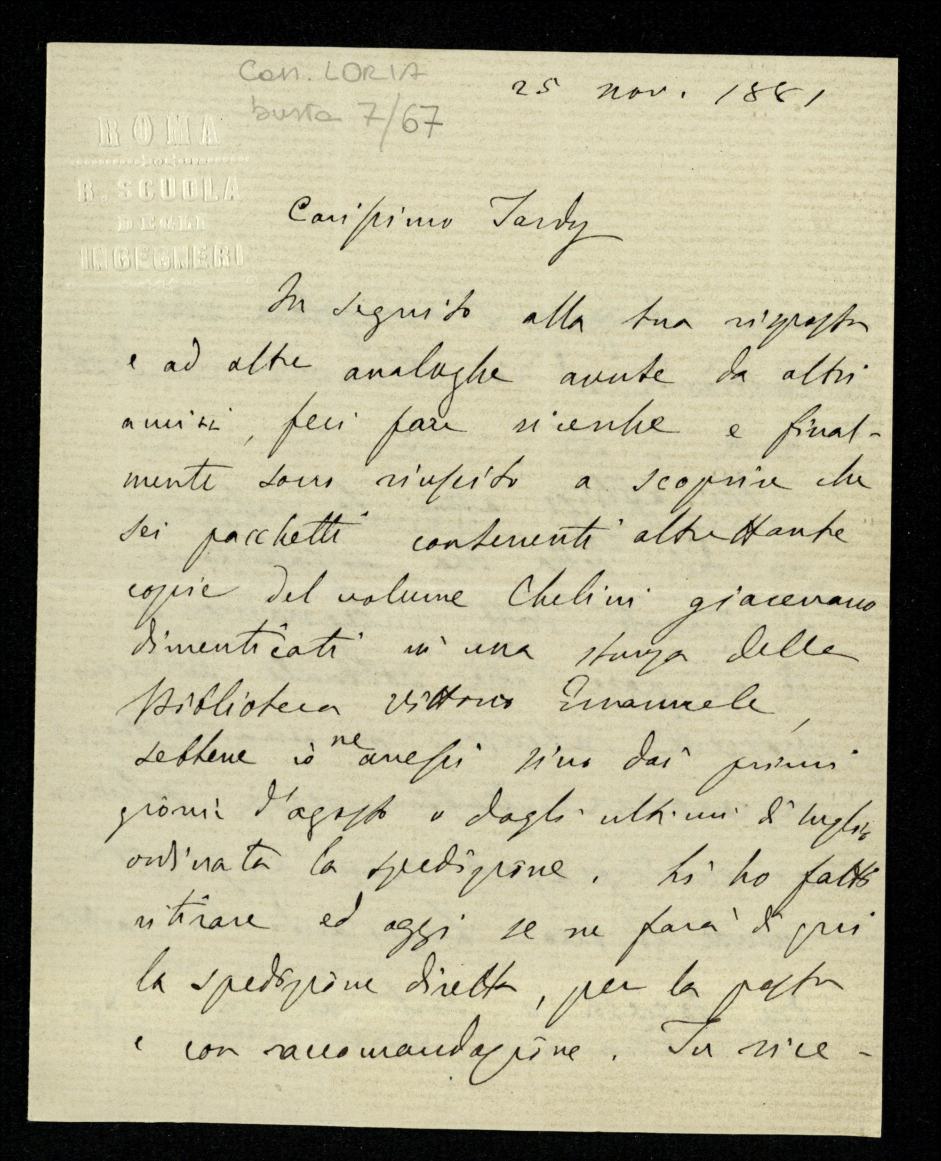 Carr. LORIA
busta 7/67
25 nov. 1881
ROMA
R. SCUOLA
DEGLI
INGEGNERI
Carissimo Tardy
In seguito alla tua risposta
e ad altre analoghe avute da altri
amici, feci fare ricerche e final-
mente sono riuscito a scoprire che
sei pacchetti contenenti altrettante
copie del volume Chelini giacevano
dimenticati in una stanza della
Biblioteca Vittorio Emanuele,
sebbene io ne avessi sino dai primi
giorni d'agosto o dagli ultimi di luglio
ordinata la spedizione. Li ho fatti
ritirare ed oggi se ne farà di qui
la spedizione diretta, per la posta
e con raccomandazione. Tu rice-